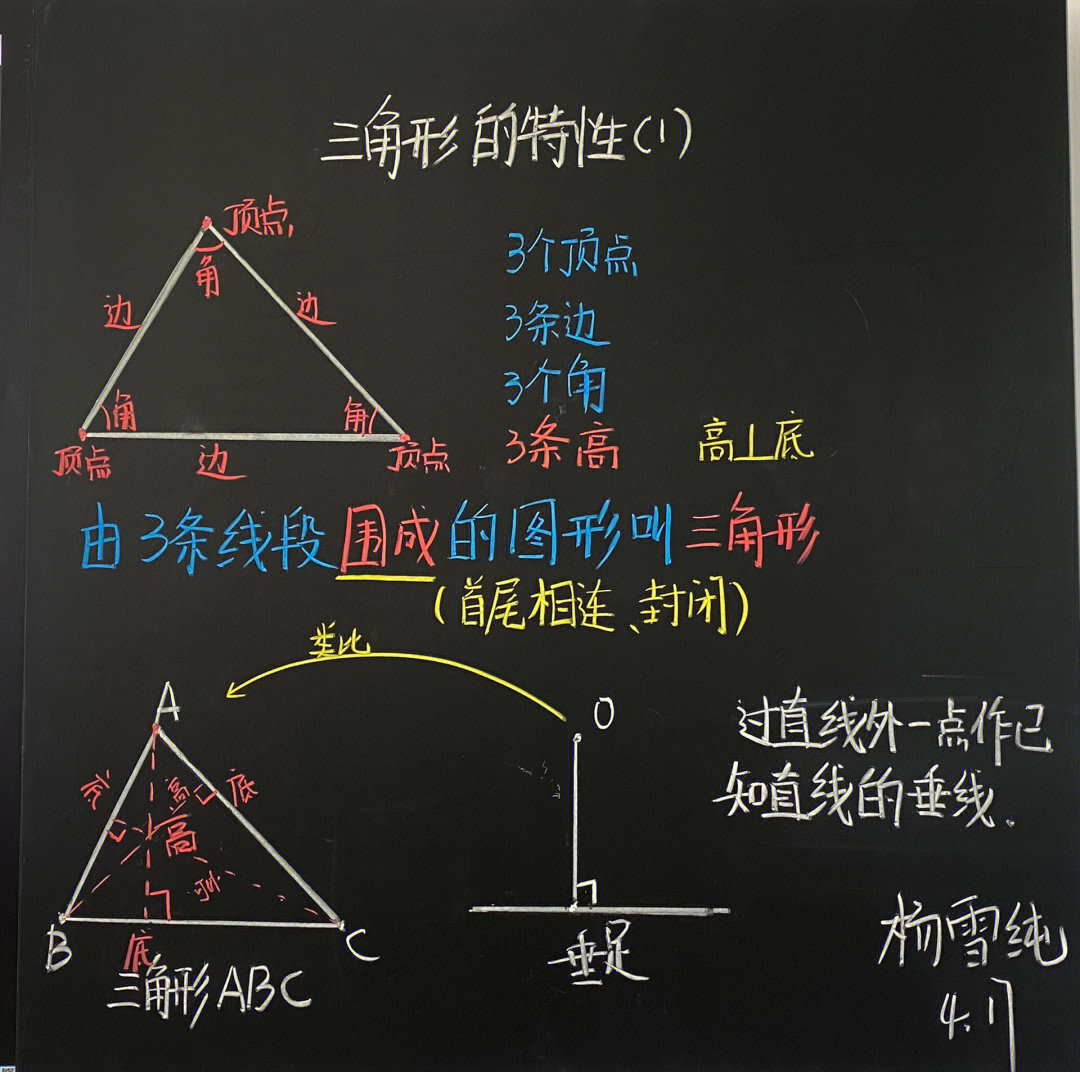 三角形的特性(1)
顶点
角
边
边
角
角
顶点
边
顶点
3个顶点
3条边
3个角
3条高 高⊥底
由3条线段围成的图形叫三角形
(首尾相连、封闭)
类比
A
底
高
底
高
高
B
底
C
三角形ABC
O
垂足
过直线外一点作已
知直线的垂线.
杨雪纯
4.17